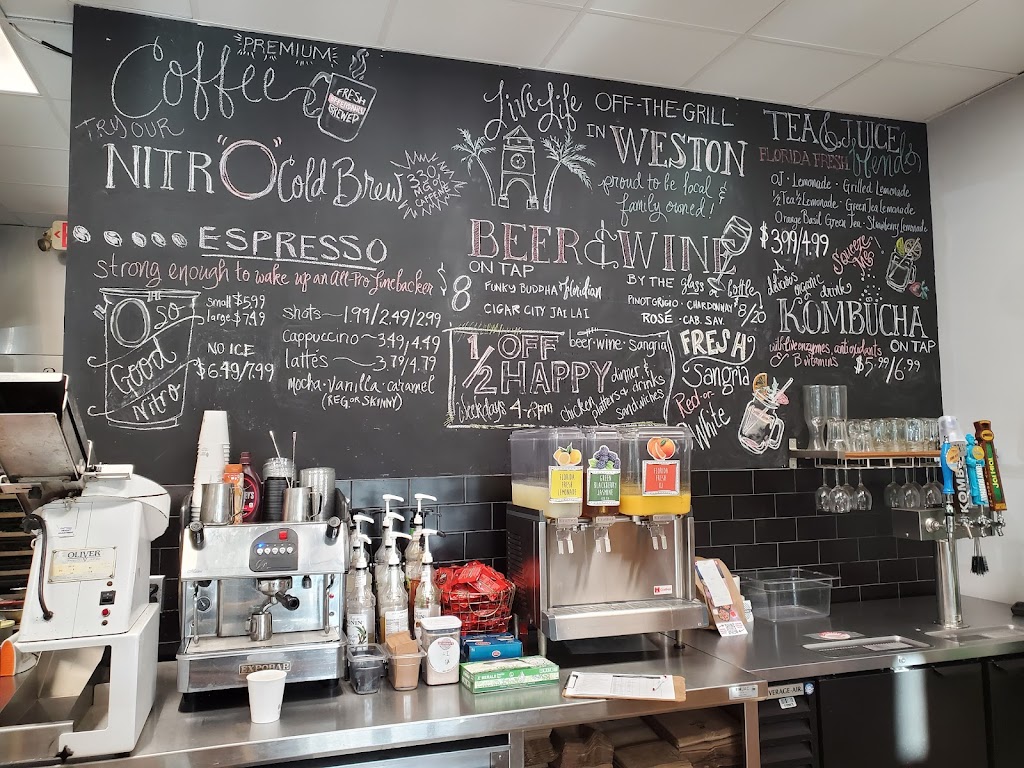 PREMIUM
Coffee
FRESH
BREWED
TRY OUR
NITRO Cold Brew
330
M.G. OF
CAFFEINE
ESPRESSO
strong enough to wake up an All-Pro linebacker
O So
Good
Nitro
small $5.99
large $7.49
NO ICE
$6.49/7.99
shots 1.99/2.49/2.99
Cappuccino 3.49/4.49
lattés 3.79/4.79
mocha · vanilla · caramel
(REG. OR SKINNY)
Live Life
OFF-THE-GRILL
IN WESTON
proud to be local &
family owned!
BEER & WINE
ON TAP
$8
FUNKY BUDDHA Floridian
CIGAR CITY JAI LAI
BY THE glass & bottle
PINOT GRIGIO · CHARDONNAY
ROSÉ · CAB. SAV.
$8/20
1/2 OFF
HAPPY
beer · wine · sangria
dinner &
drinks
weekdays 4-7pm
chicken platters &
sandwiches
FRESH
Sangria
Red or
White
TEA & JUICE
blends
FLORIDA FRESH
OJ · Lemonade · Grilled Lemonade
1/2 Tea 1/2 Lemonade · Green Tea Lemonade
Orange Basil Green Tea · Strawberry Lemonade
$3.99/4.99
Squeeze
Me
A
delicious organic
drink
KOMBUCHA
with live enzymes, antioxidants
& B vitamins
ON TAP
$5.99/6.99
FLORIDA
FRESH
LEMONADE
GREEN
BLACKBERRY
JASMINE
FLORIDA
FRESH
OJ
OLIVER
EXPOBAR
BEVERAGE-AIR
KOMBU